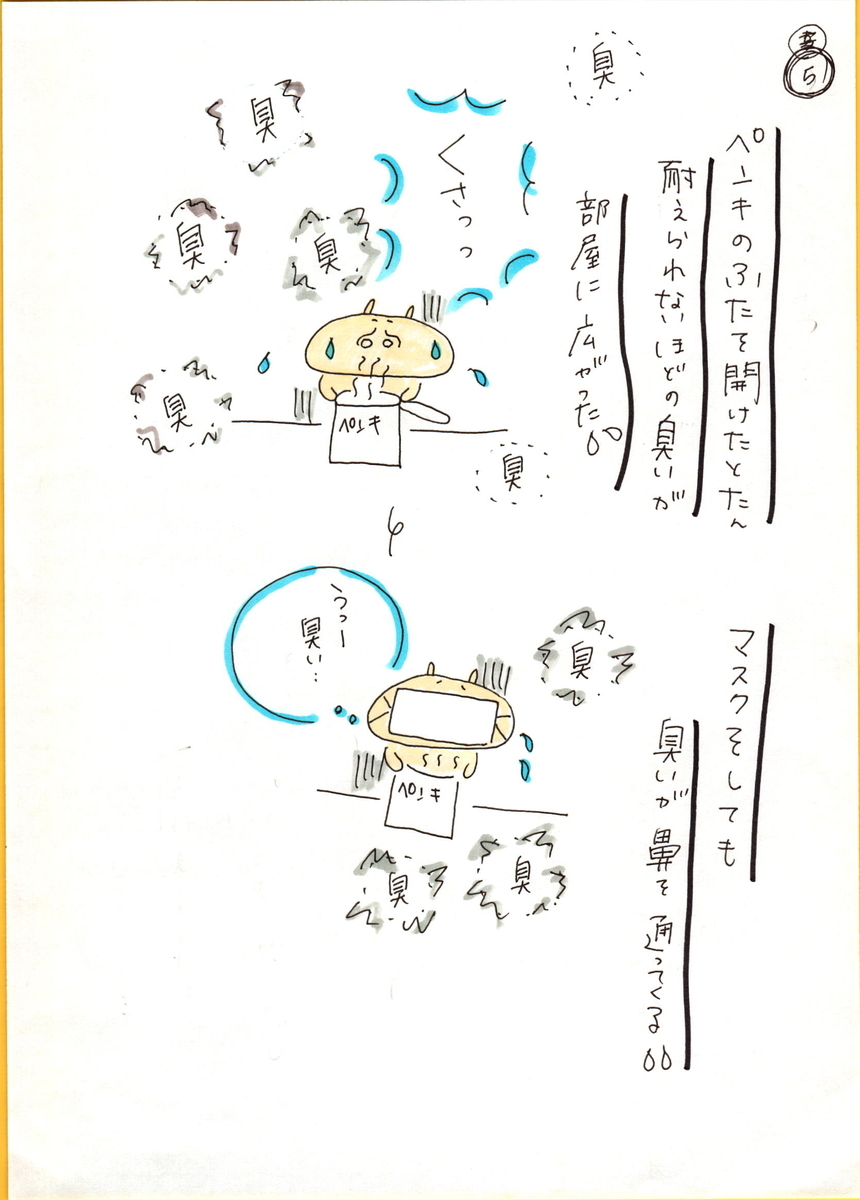 5
ペンキのふたを開けたとたん
耐えられないほどの臭いが
部屋に広がった
くさっっ
臭
臭
臭
臭
臭
臭
ペンキ
マスクをしても
臭いが鼻を通ってくる
うっー
臭い…
臭
ペンキ
臭
臭